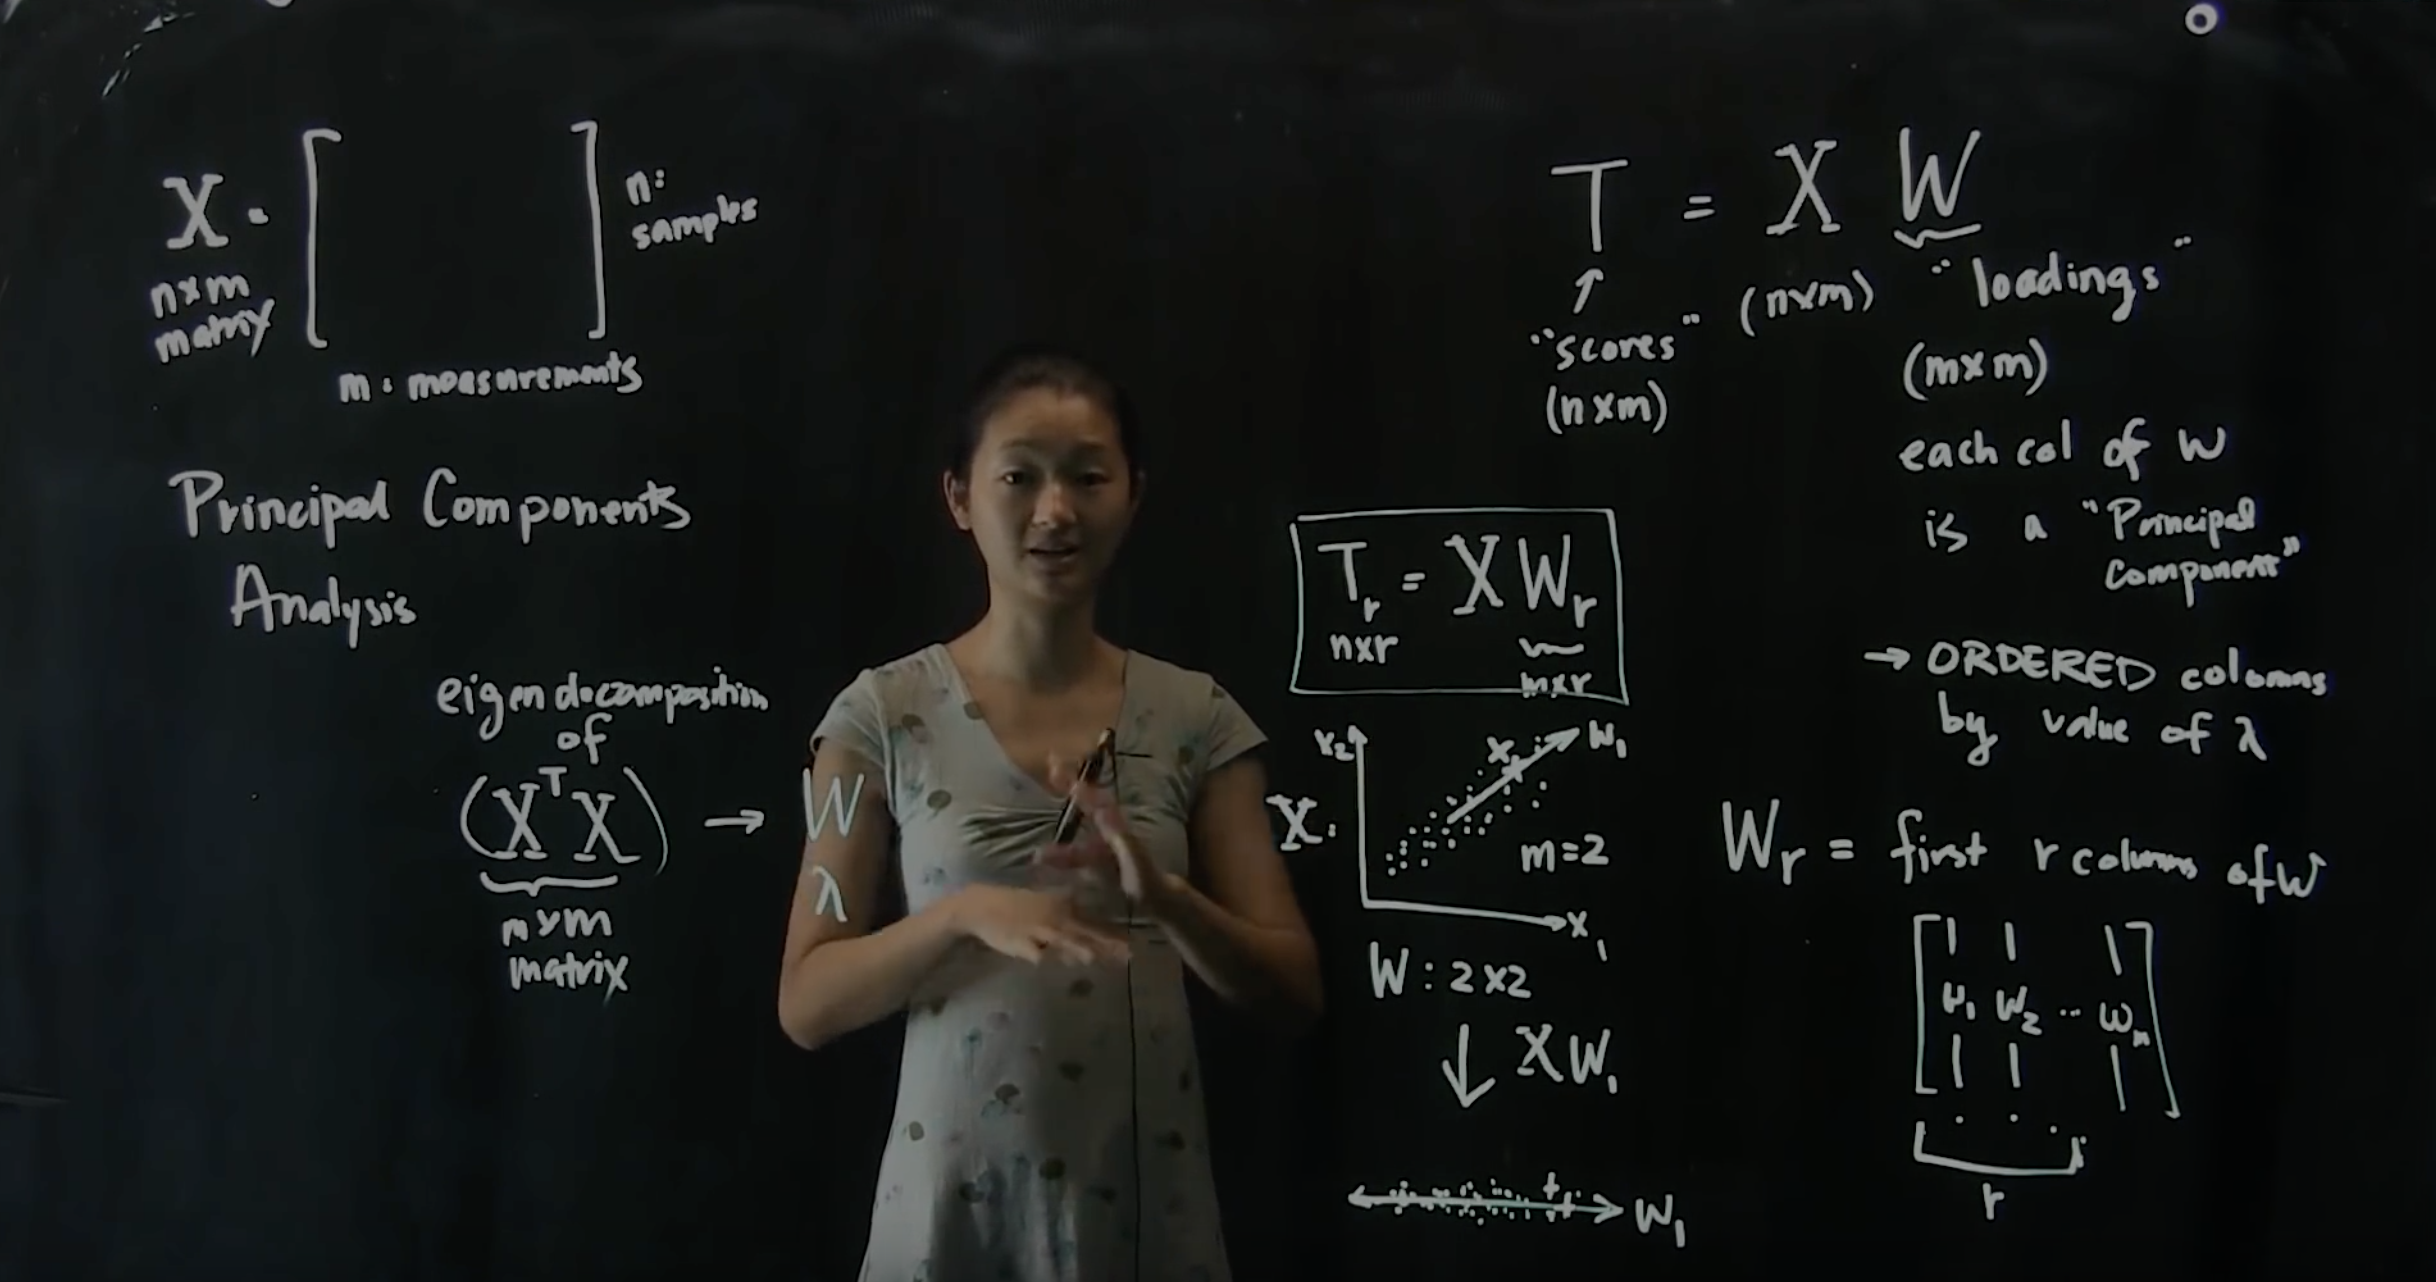 X = [ ] n:
samples
nxm
matrix
m: measurements
Principal Components
Analysis
eigendecomposition
of
(XᵀX) → W
λ
mxm
matrix
T = X W
"scores" (nxm) "loadings"
(nxm) (mxm)
each col of W
is a "Principal
Component"
→ ORDERED columns
by value of λ
Tᵣ = X Wᵣ
nxr mxr
X:
x₂
x
w₁
m=2
x₁
W: 2x2
↓ XW₁
W₁
Wᵣ = first r columns of W
w₁ w₂ ...
r